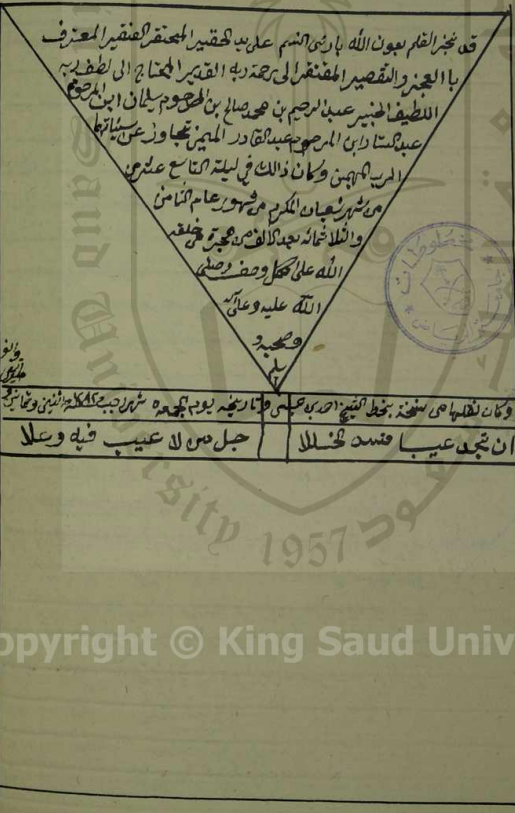 قد نجز القلم بعون الله بارئ النسم على يد الحقير المحتقر الفقير المعترف
باالعجز والتقصير المفتقر الى رحمة ربه القدير المحتاج الى لطف ربه
اللطيف الخبير عبد الرحيم بن محمد صالح بن المرحوم سليمان ابن المرحوم
عبد الستار ابن المرحوم عبد القادر تجاوز عن سيئاتهما
الرب المهيمن وكان ذالك في ليلة التاسع عشر من
من شهر شعبان المكرم من شهور عام الثامن
والثلاثمائه بعد الالف من هجرة من خلقه
الله على اكمل وصف وصلى
الله عليه وعلى آله
وصحبه و
سلم
وكان نقلها من نسخة بخط الشيخ احمد بن عيسى وتاريخه يوم الجمعه شهر رجب ١٢٨٢
ان تجد عيبا فسد الخللا جل من لا عيب فيه وعلا
1957
Copyright © King Saud Univ